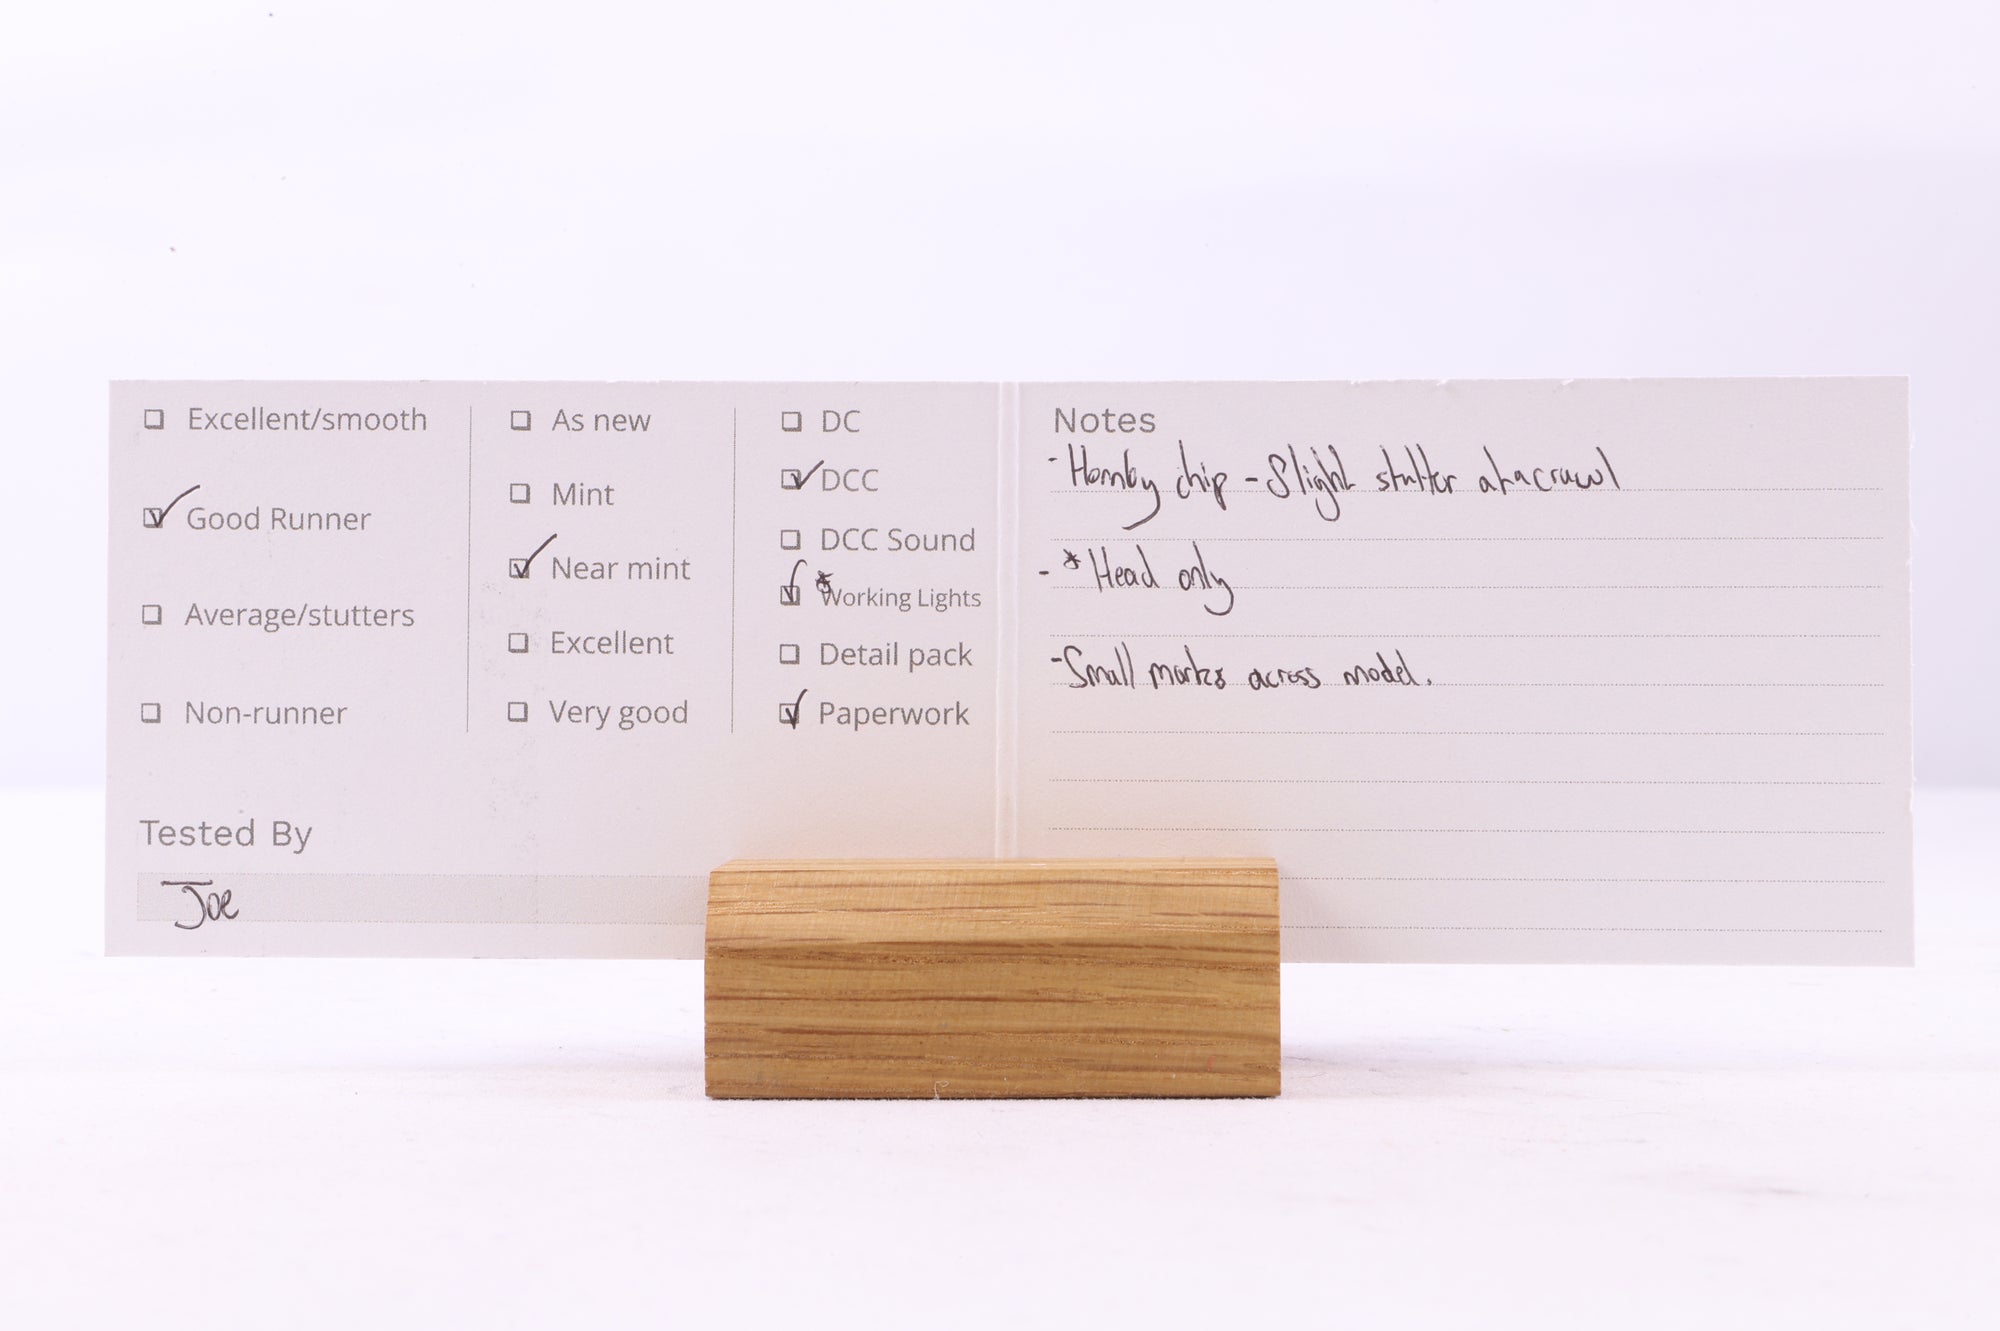 Excellent/smooth
Good Runner
Average/stutters
Non-runner
As new
Mint
Near mint
Excellent
Very good
DC
DCC
DCC Sound
*Working Lights
Detail pack
Paperwork
Tested By
Joe
Notes
- Hornby chip - Slight stutter at a crawl
- *Head only
- Small marks across model.